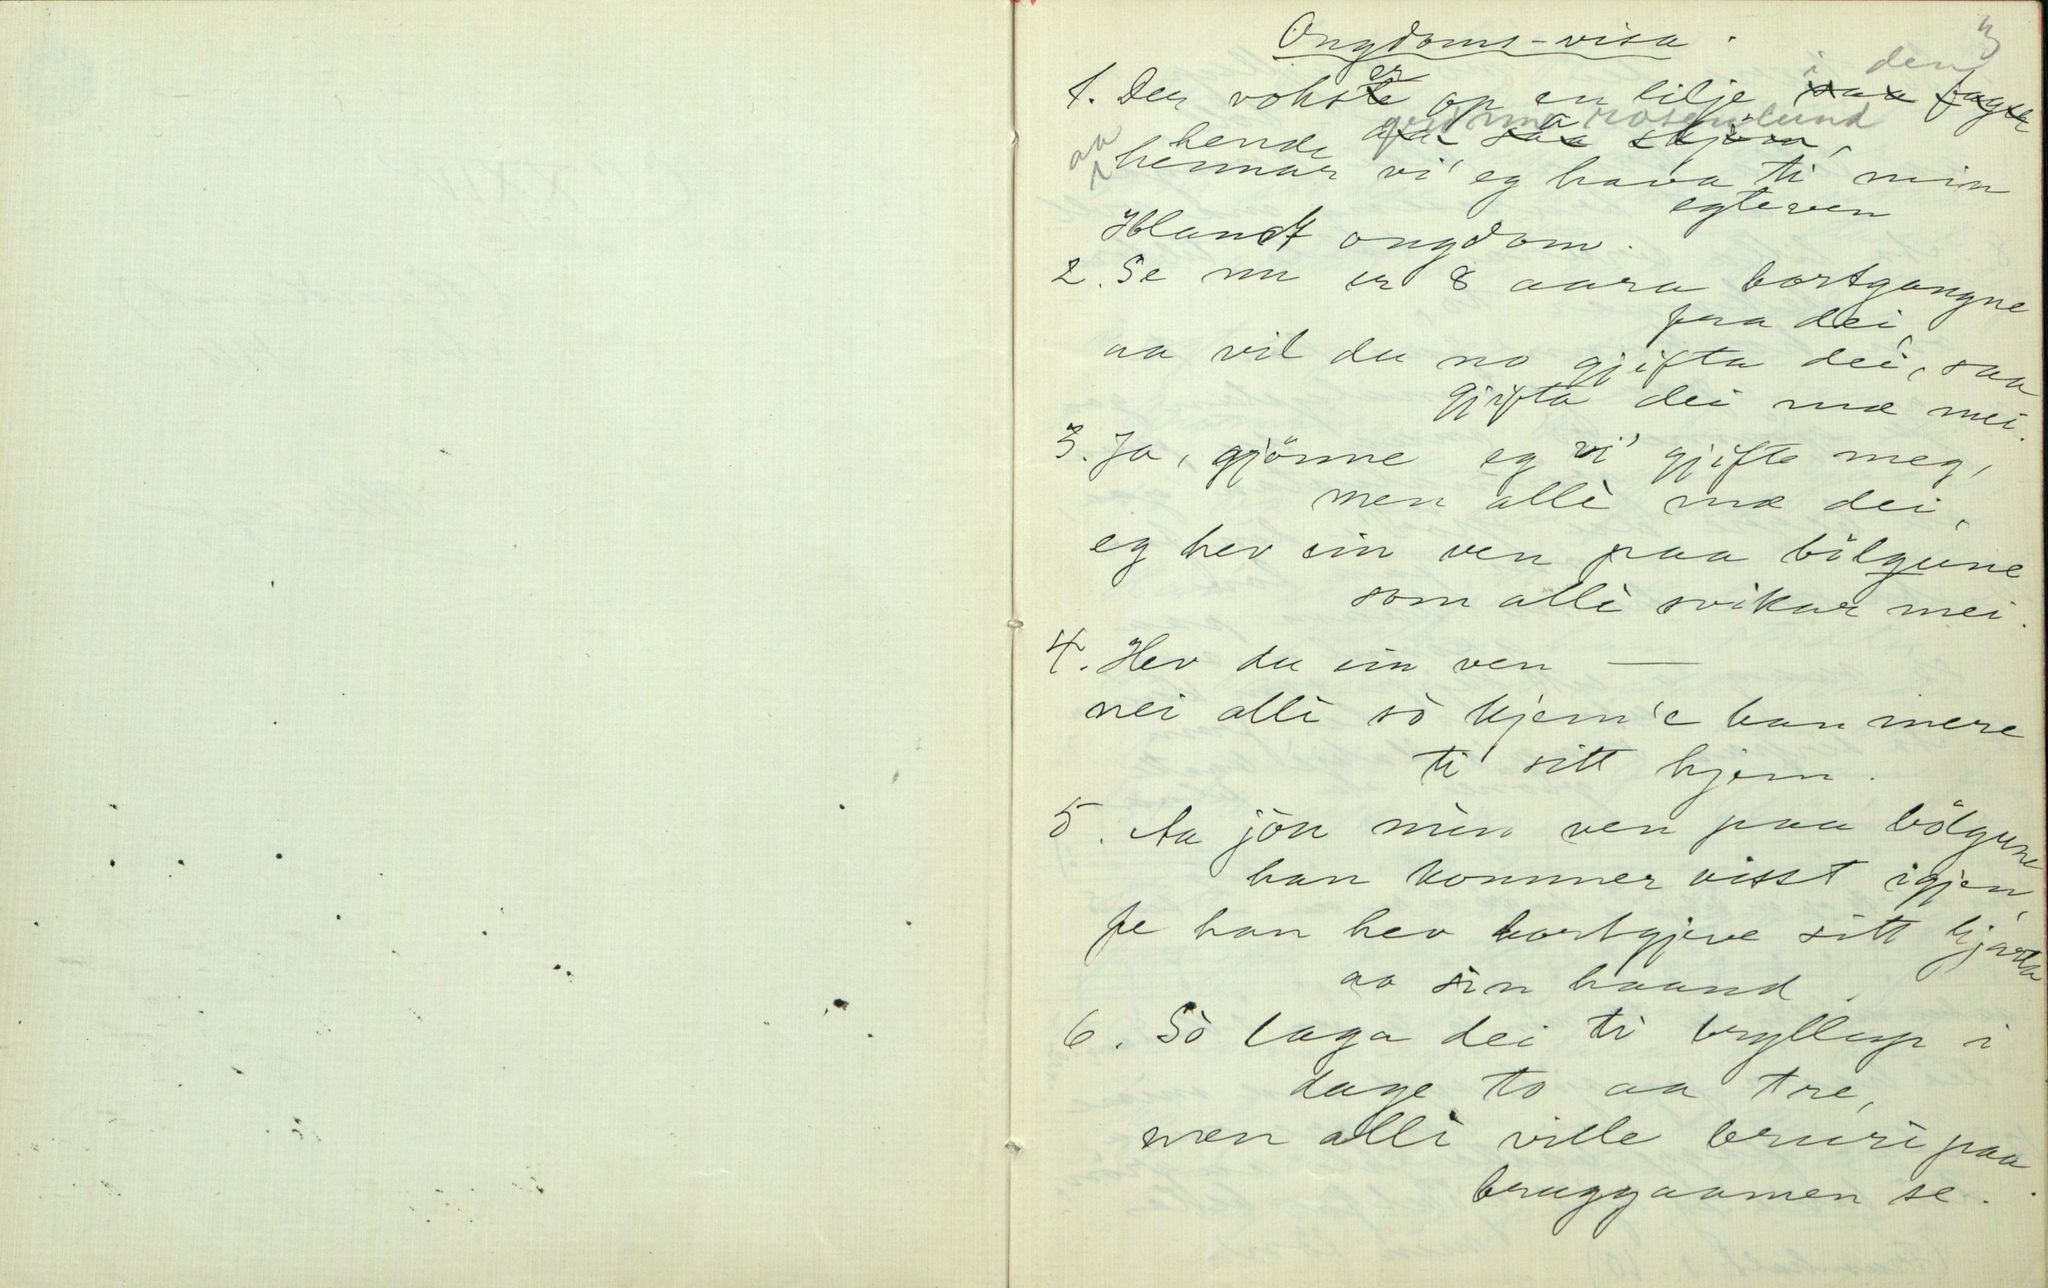 3
Ongdoms-visa.
i den
er
1. Der vokste op en lilje saa fager
grønna rosenlund
hende saa skjøn,
aa hennar vi' eg hava ti min
egteven
Iblandt ongdom.
2. Se nu er 8 aara bortgangne
fraa dei,
aa vil du no gjifta dei, saa
gjifta dei mæ mei.
3. Ja, gjönne eg vi' gjifte meg,
men allè mæ dei,
eg hev ein ven paa bölgune
som allè svikar mei.
4. Hev du ein ven —
nei allè sò kjem'e han mere
ti sitt hjem.
5. Aa jöu min ven paa bölgune
han kommer visst igjen,
fe han hev bortgjeve sitt hjarta
aa sin haand.
6. Sò laga dei ti bryllup i
dage to aa tre,
men allè ville bruri paa
bruggaamen se.